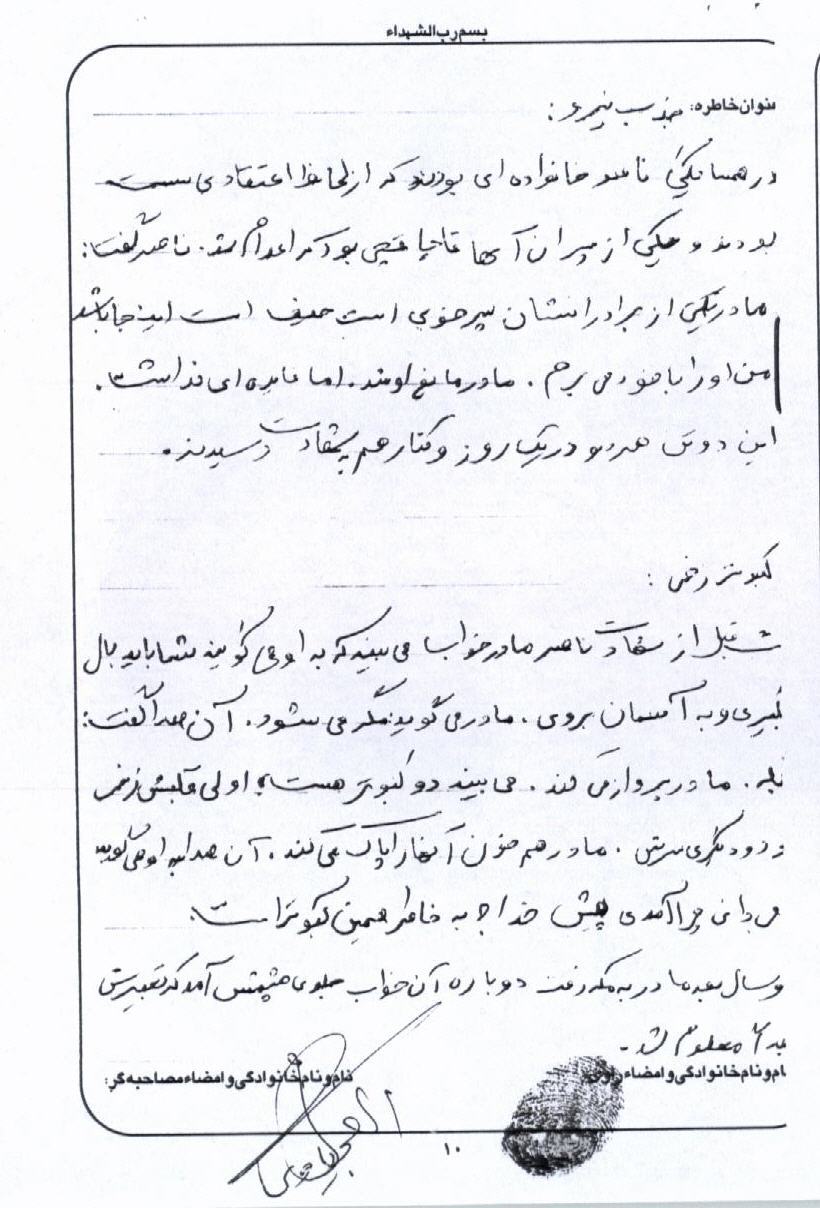 بسم رب الشهداء
عنوان خاطره:
در همسایگی ناصر خانواده ای بودند که از لحاظ اعتقادی سست
بودند و یکی از پسران آنها قاچاقچی بود که اعدام شد. ناصر گفت:
مادر یکی از برادرانشان پسر خوبی است حیف است اینجا باشد
من او را با خود می برم. مادر مانع او شد. اما فایده ای نداشت.
این دوتن هر دو در یک روز و کنار هم بشهادت رسیدند.
کبوتر زخمی:
شب قبل از شهادت ناصر مادر خواب می بیند که به او می گویند شما باید بال
بگیری و به آسمان بروی. مادر می گوید مگر می شود. آن صدا گفت:
بله. مادر پرواز می کند. می بیند دو کبوتر هست اولی قلبش زخمی
و دیگری سرش. مادر هم خون آنها را پاک می کند. آن صدا به او می گوید
می دانی چرا آمدی پیش خدا به خاطر همین کبوتر است.
وسال بعد مادر به مکه رفت دوباره آن خواب جلوی چشمش آمد که تعبیرش
بعداً معلوم شد.
نام و نام خانوادگی و امضاء راوی:
نام و نام خانوادگی و امضاء مصاحبه گر:
۱۰